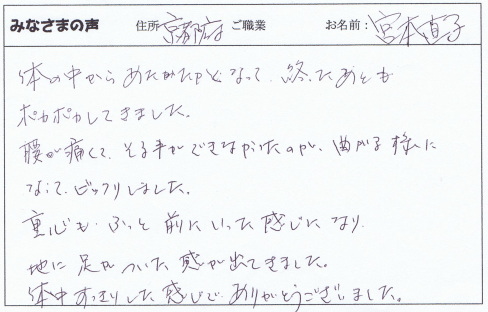 みなさまの声 住所 京都府 ご職業 お名前：宮本直子
体の中からあたたかくなって、終ったあとも
ポカポカしてきました。
腰が痛くて、そる事ができなかったのが、曲がる様に
なって、ビックリしました。
重心も、ぐっと前にいった感じになり、
地に足がついた感が出てきました。
体中すっきりした感じで、ありがとうございました。